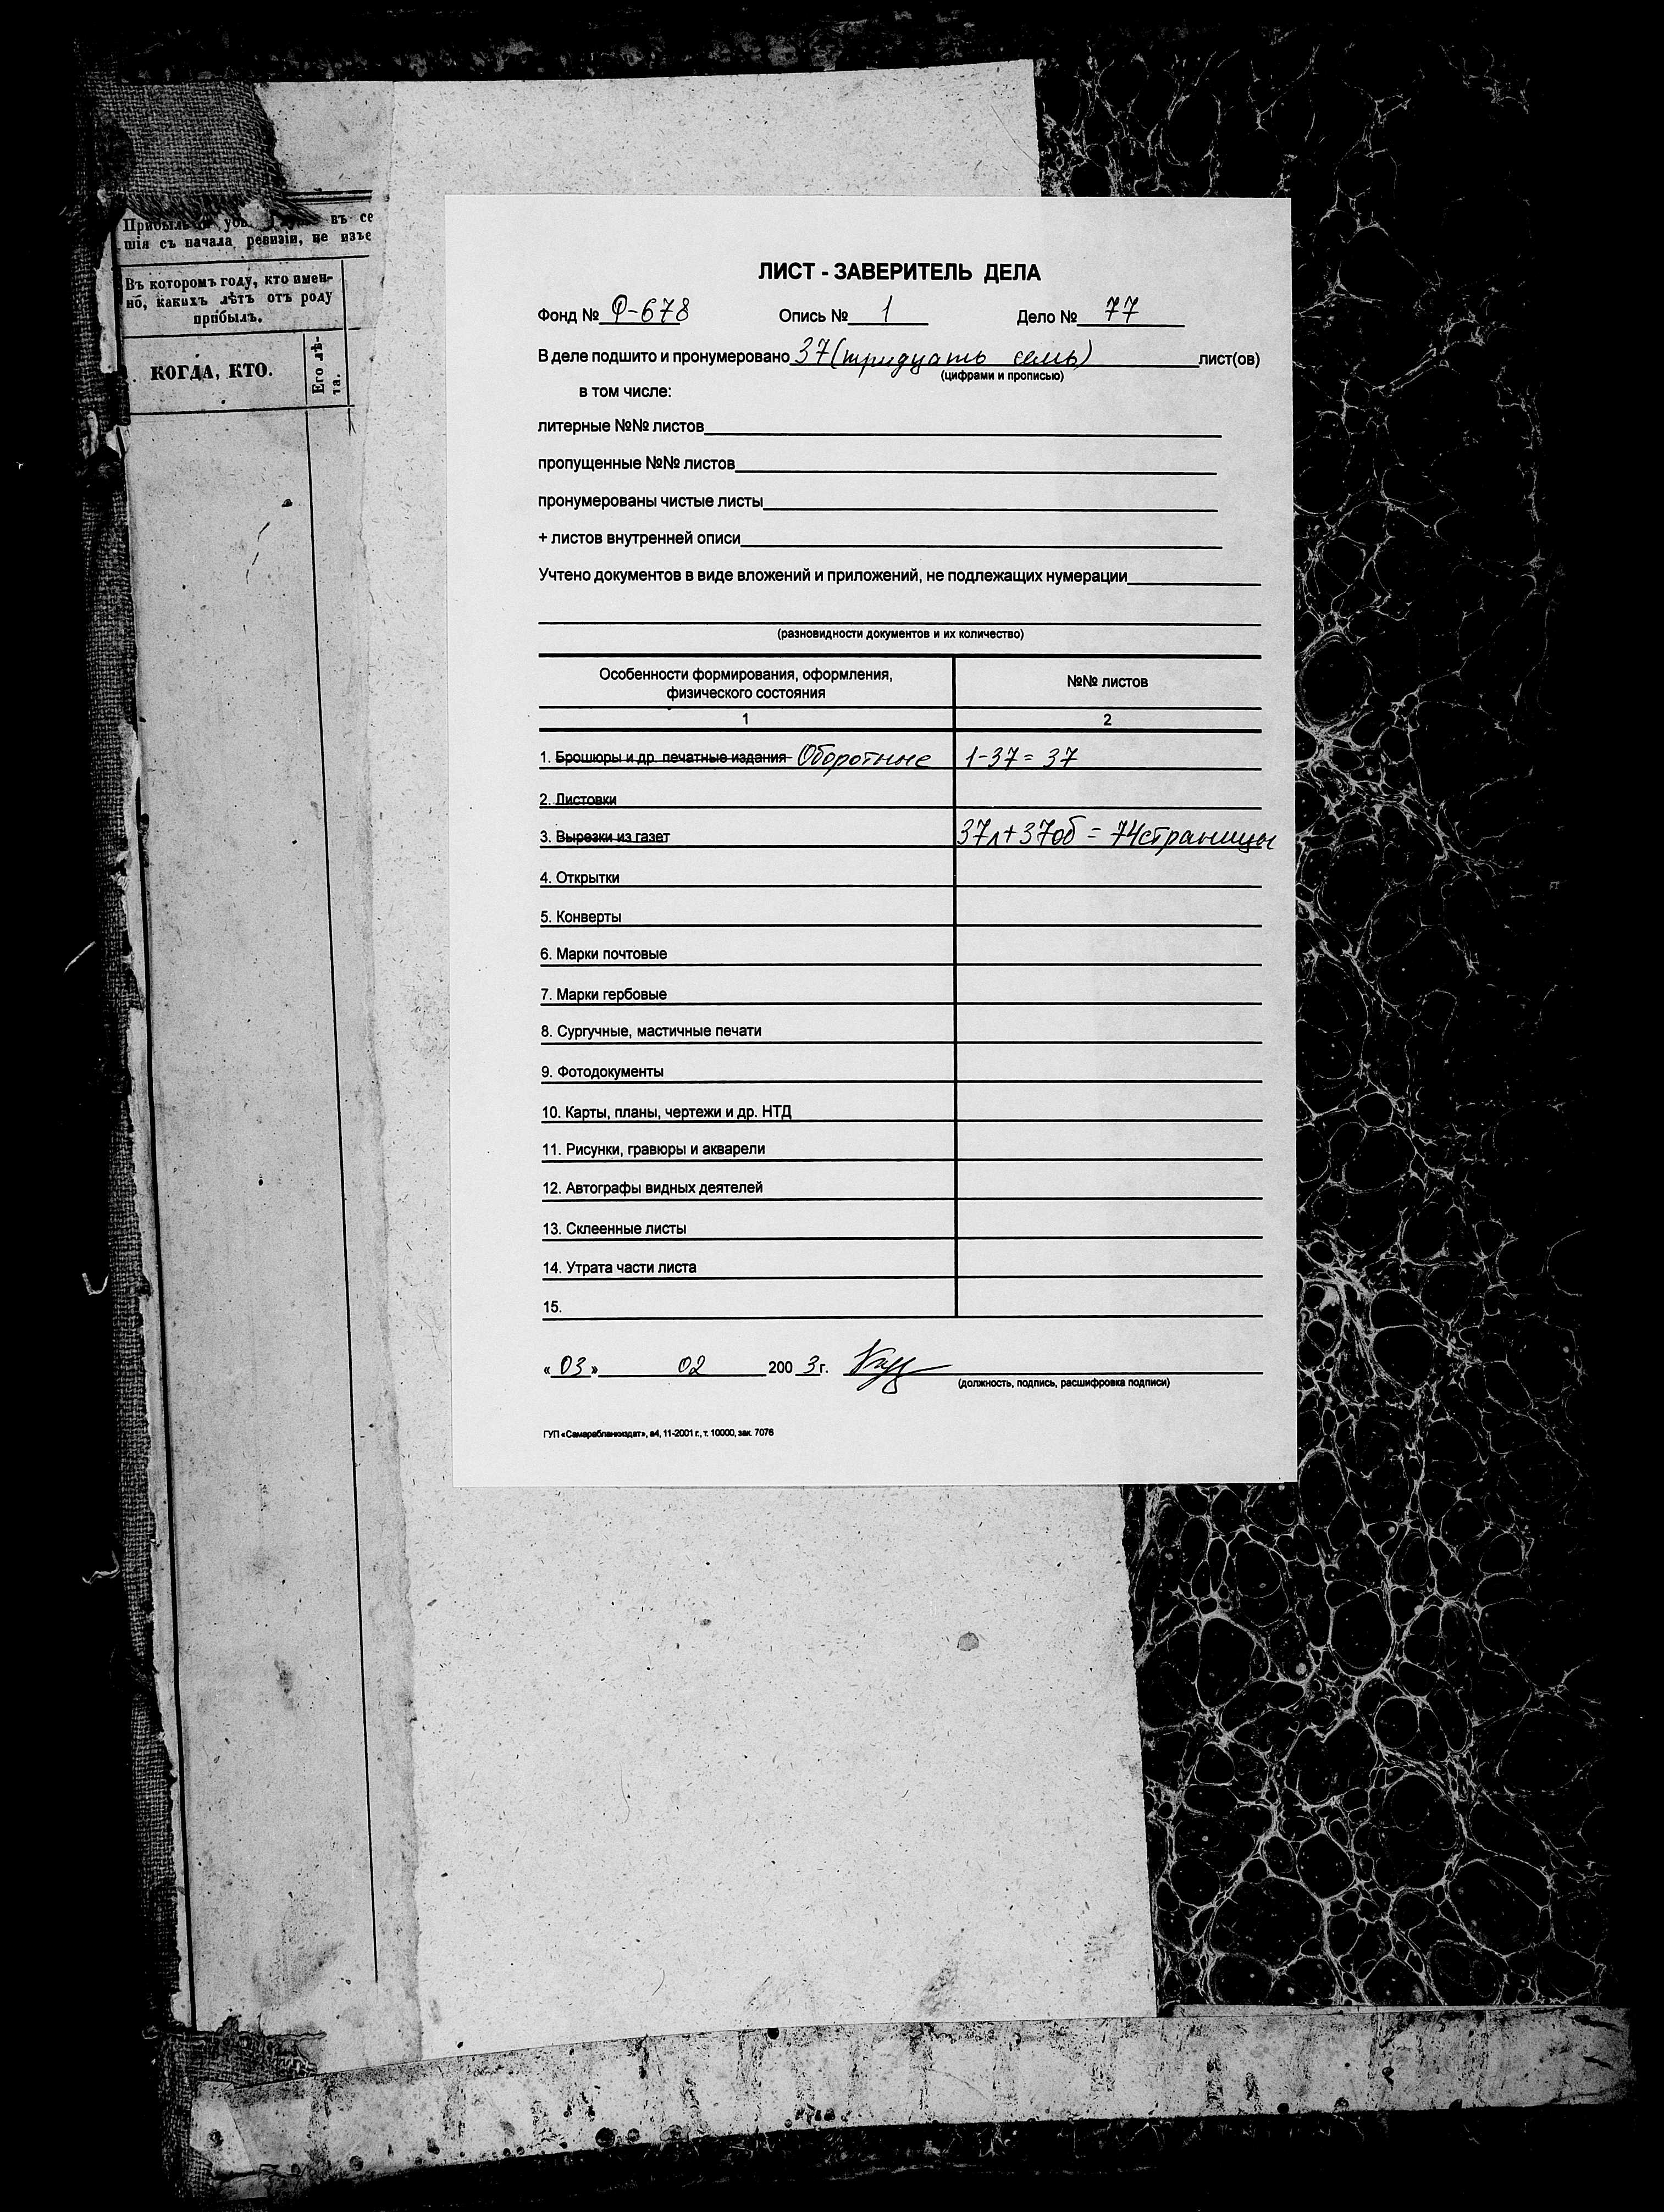 Прибыль въ се
шія съ начала ревизіи, не изъе
Въ которомъ году, кто имен-
но, какихъ лѣтъ отъ роду
прибылъ.
КОГДА, КТО.
Его лѣ-
та.
ЛИСТ - ЗАВЕРИТЕЛЬ ДЕЛА
Фонд № Ф-678 Опись № 1 Дело № 77
В деле подшито и пронумеровано 37 (тридцать семь) лист(ов)
(цифрами и прописью)
в том числе:
литерные №№ листов
пропущенные №№ листов
пронумерованы чистые листы
+ листов внутренней описи
Учтено документов в виде вложений и приложений, не подлежащих нумерации
(разновидности документов и их количество)
Особенности формирования, оформления,
физического состояния
№№ листов
1 2
1. Брошюры и др. печатные издания Оборотные 1-37 = 37
2. Листовки
3. Вырезки из газет 37л + 37об = 74 страницы
4. Открытки
5. Конверты
6. Марки почтовые
7. Марки гербовые
8. Сургучные, мастичные печати
9. Фотодокументы
10. Карты, планы, чертежи и др. НТД
11. Рисунки, гравюры и акварели
12. Автографы видных деятелей
13. Склеенные листы
14. Утрата части листа
15.
« 03 » 02 200 3 г.
(должность, подпись, расшифровка подписи)
ГУП «Самарабланкиздат», а4, 11-2001 г., т. 10000, зак. 7076